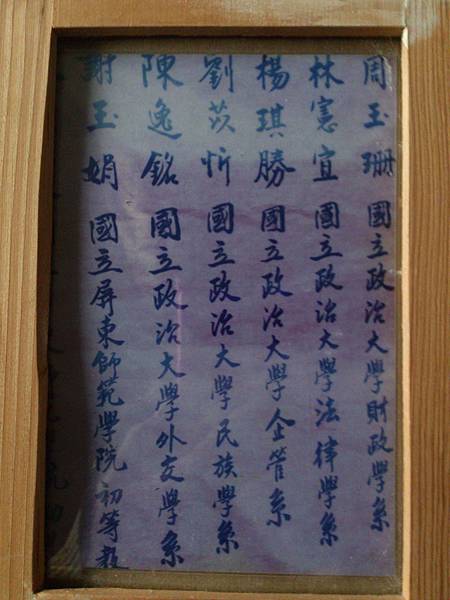 周玉珊 國立政治大學財政學系
林憲宜 國立政治大學法律學系
楊琪勝 國立政治大學企管系
劉苡忻 國立政治大學民族學系
陳逸銘 國立政治大學外交學系
謝玉娟 國立屏東師範學院初等教